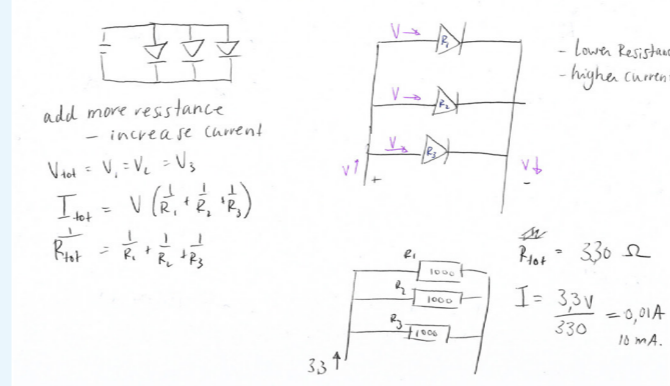 add more resstance
– increase current
V tot = V₁ = V₂ = V₃
I tot = V (1/R₁ + 1/R₂ + 1/R₃)
1/Rtot = 1/R₁ + 1/R₂ + 1/R₃
V→ R₁
V→ R₂
V→ R₃
V↑ + V↓ -
- Lower Resistanc
- higher curren
R₁ 1000
R₂ 1000
R₃ 1000
33 ↑
Rtot = 330 Ω
I = 3,3V / 330 = 0,01A
10 mA.